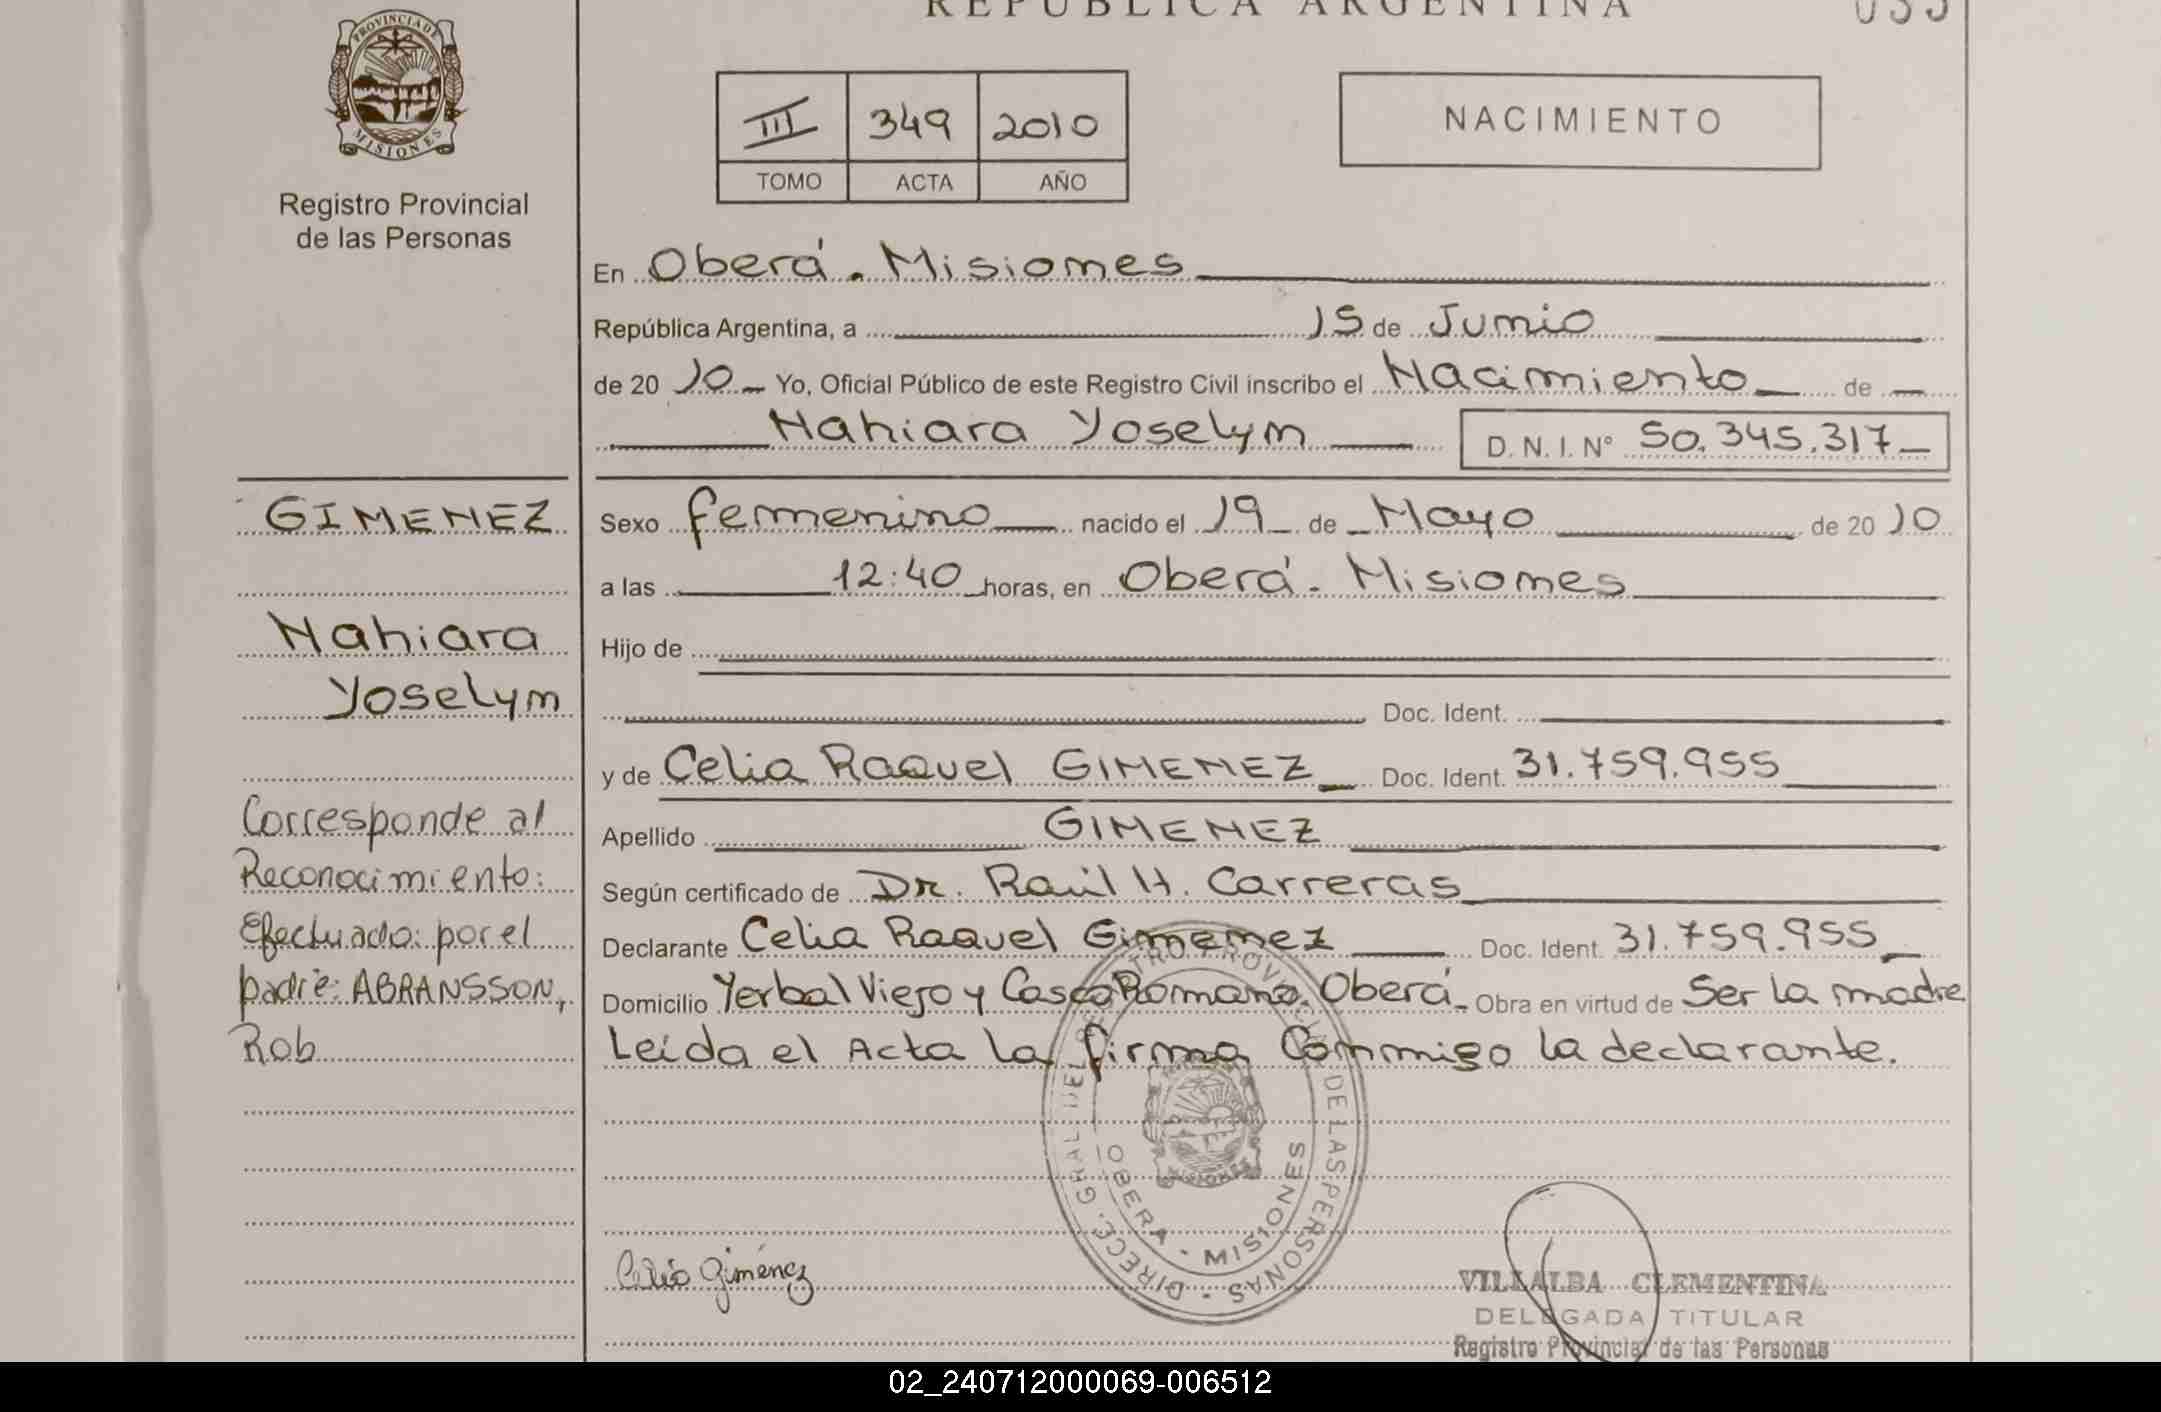 REPUBLICA ARGENTINA
PROVINCIA DE
MISIONES
Registro Provincial
de las Personas
III 349 2010
TOMO ACTA AÑO
NACIMIENTO
En Oberá. Misiones
República Argentina, a 15 de Junio
de 20 10 Yo, Oficial Público de este Registro Civil inscribo el Nacimiento de
Nahiara Yoselyn D. N. I. Nº 50.345.317
GIMENEZ
Nahiara
Yoselyn
Corresponde al
Reconocimiento:
Efectuado: por el
padre: ABRANSSON,
Rob
Sexo femenino nacido el 19 de Mayo de 20 10
a las 12:40 horas, en Oberá. Misiones
Hijo de
Doc. Ident.
y de Celia Raquel GIMENEZ Doc. Ident. 31.759.955
Apellido GIMENEZ
Según certificado de Dr. Raúl H. Carreras
Declarante Celia Raquel Gimenez Doc. Ident. 31.759.955
Domicilio Yerbal Viejo y Casco Romano. Oberá Obra en virtud de Ser la madre
Leída el Acta la firma Conmigo la declarante.
DIRECC. GRAL DEL REGISTRO PROVINCIAL DE LAS PERSONAS
OBERA - MISIONES
MISIONES
Celia Giménez
VILLALBA CLEMENTINA
DELEGADA TITULAR
Registro Provincial de las Personas
02_240712000069-006512